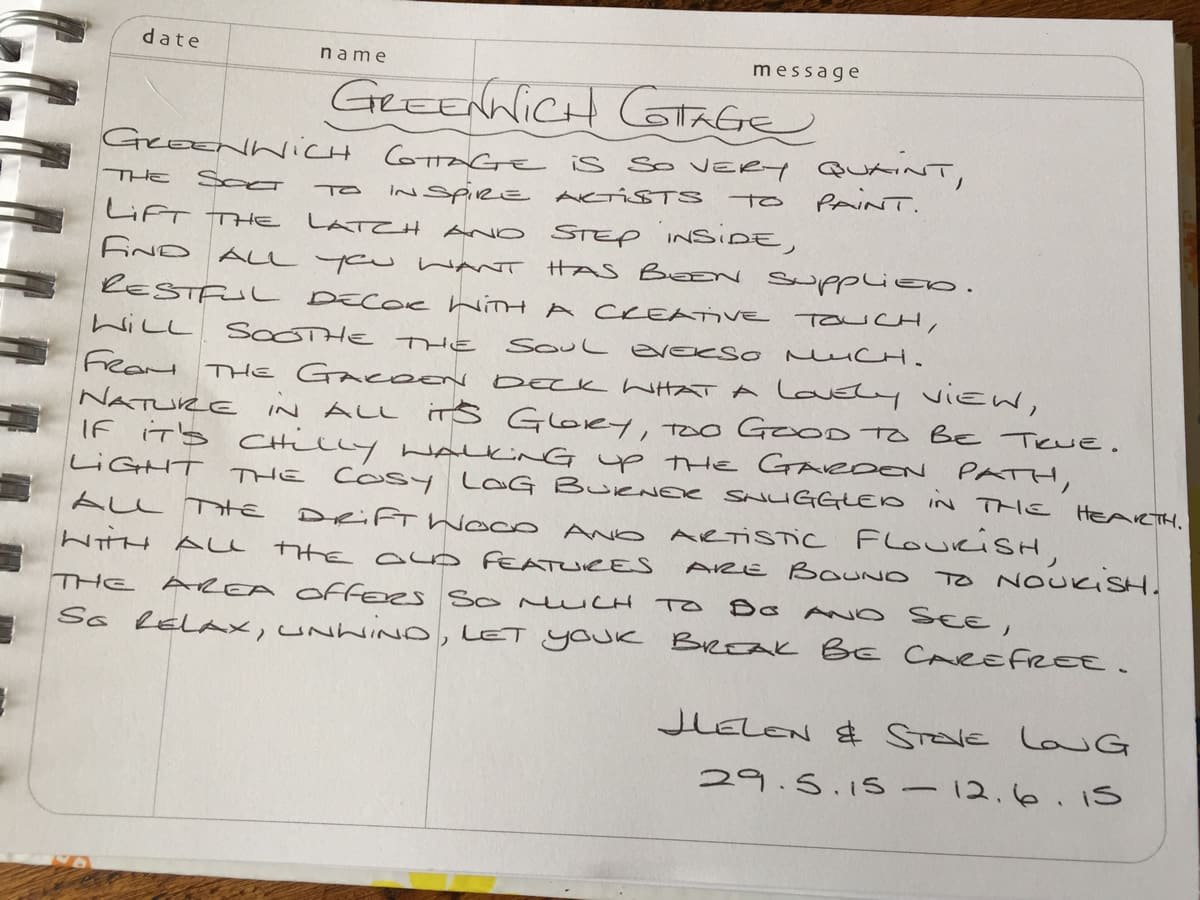 date name message
GREENWICH COTTAGE
GREENWICH COTTAGE IS SO VERY QUAINT,
THE SORT TO INSPIRE ARTISTS TO PAINT.
LIFT THE LATCH AND STEP INSIDE,
FIND ALL YOU WANT HAS BEEN SUPPLIED.
RESTFUL DECOR WITH A CREATIVE TOUCH,
WILL SOOTHE THE SOUL EVERSO MUCH.
FROM THE GARDEN DECK WHAT A LOVELY VIEW,
NATURE IN ALL IT'S GLORY, TOO GOOD TO BE TRUE.
IF IT'S CHILLY WALKING UP THE GARDEN PATH,
LIGHT THE COSY LOG BURNER SNUGGLED IN THE HEARTH.
ALL THE DRIFTWOOD AND ARTISTIC FLOURISH,
WITH ALL THE OLD FEATURES ARE BOUND TO NOURISH.
THE AREA OFFERS SO MUCH TO DO AND SEE,
SO RELAX, UNWIND, LET YOUR BREAK BE CAREFREE.
HELEN & STEVE
29.5.15 — 12.6.15